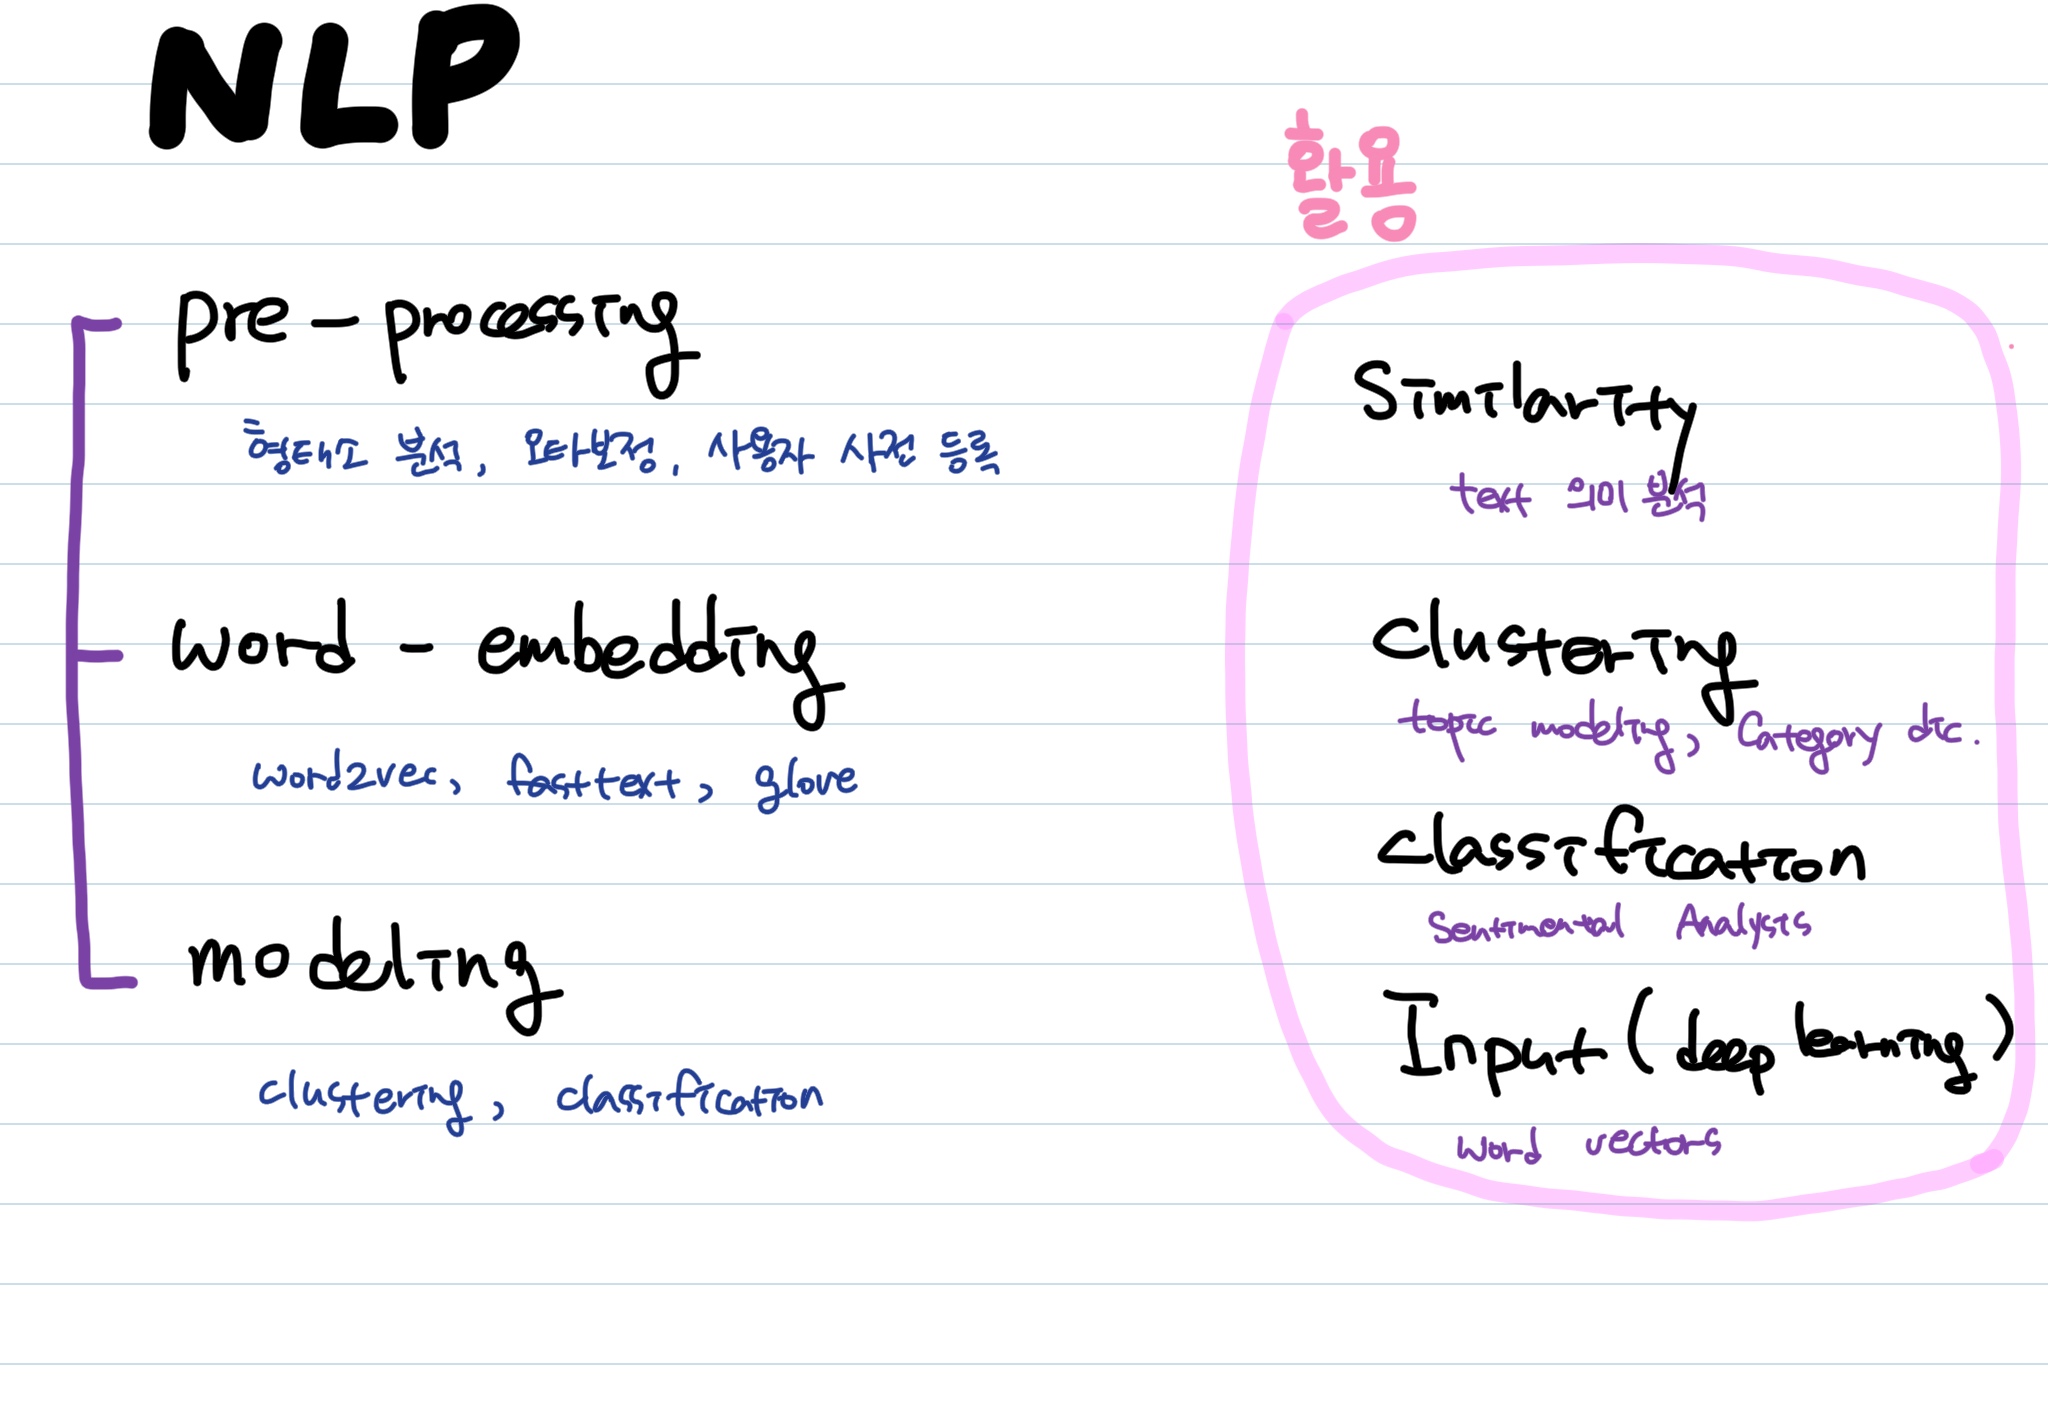 NLP
pre-processing
형태소 분석, 오타보정, 사용자 사전 등록
word - embedding
word2vec, fasttext, glove
modeling
clustering, classification
활용
Similarity
text 의미 분석
clustering
topic modeling, Category dic.
classification
Sentimental Analysis
Input (deep learning)
word vectors